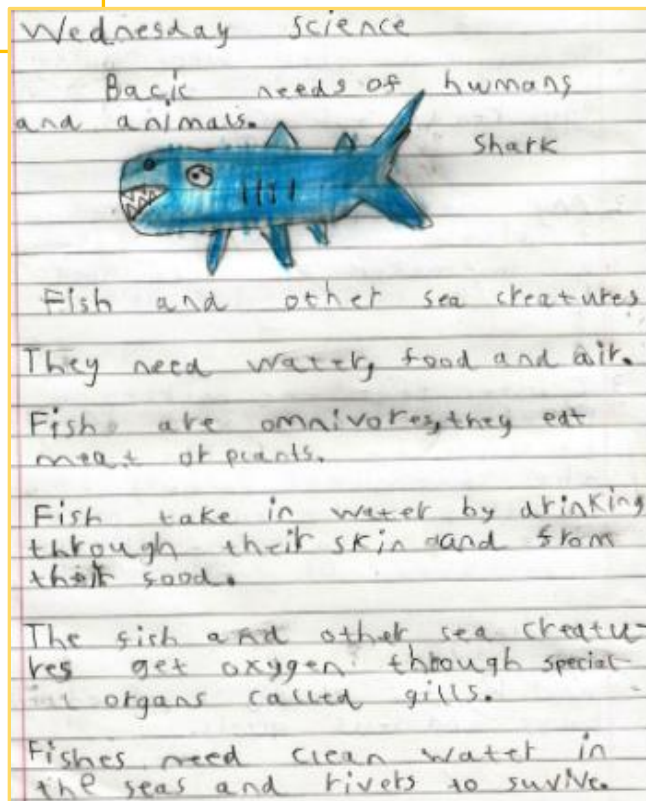 Wednesday science
Bacic needs of humans
and animals.
Shark
Fish and other sea creatures
They need water, food and air.
Fish are omnivores, they eat
meat or plants.
Fish take in water by drinking
through their skin and from
their food.
The fish and other sea creatu-
res get oxygen through special
organs called gills.
Fishes need clean water in
the seas and rivers to suvive.